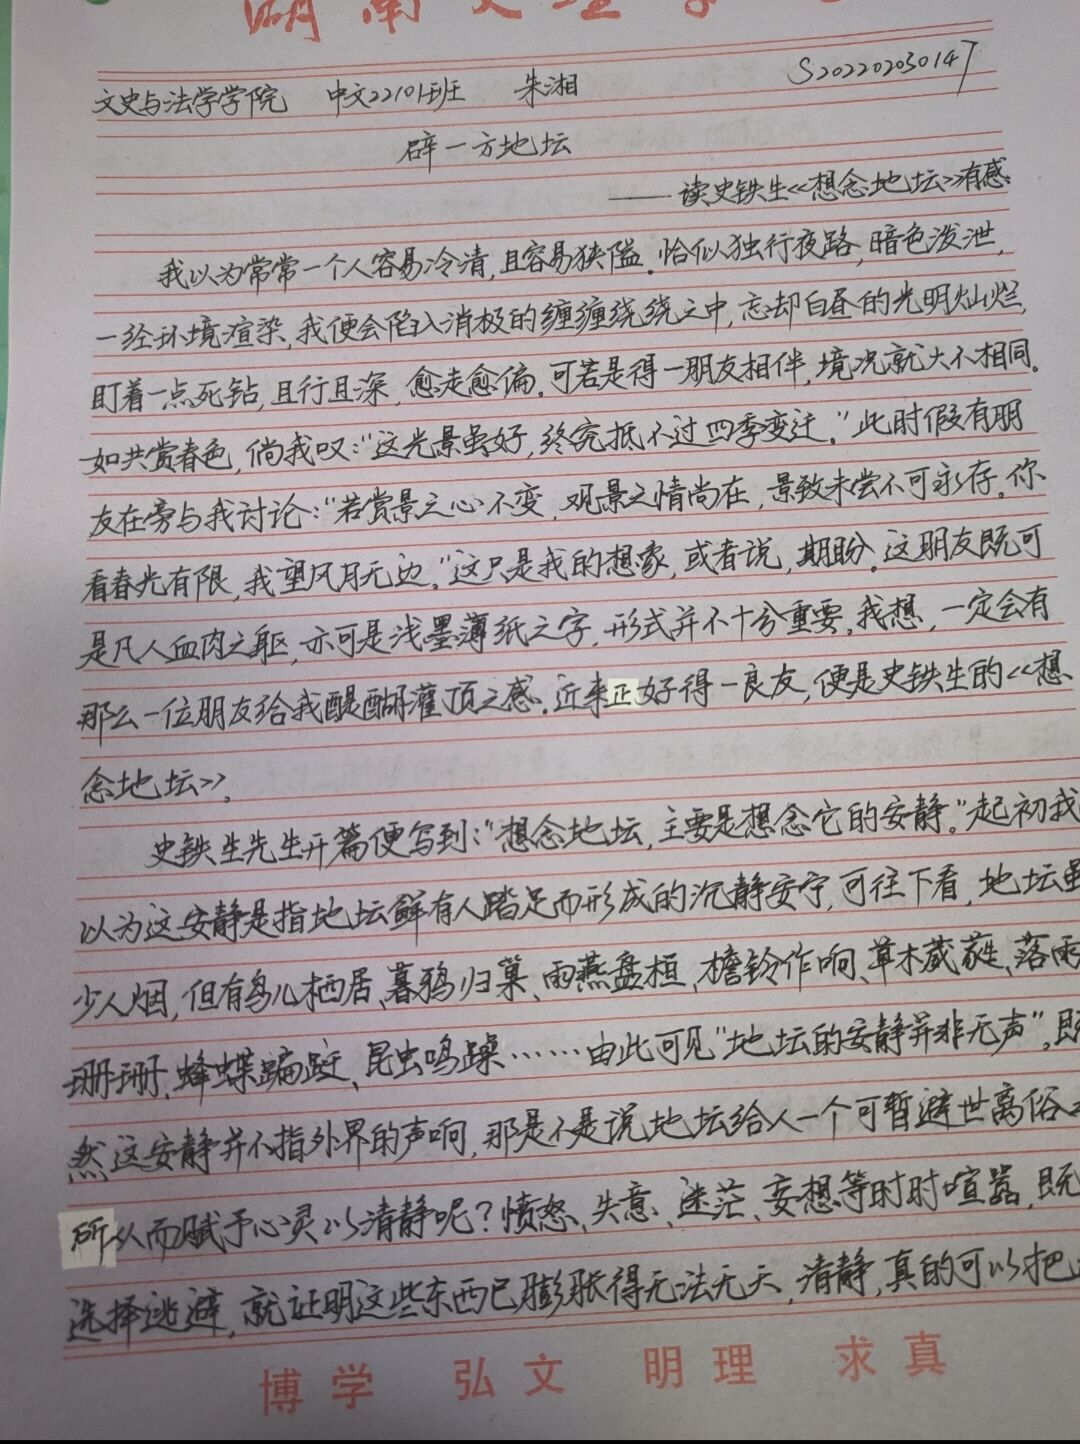 文史与法学学院 中文22101班 朱湘 S20220203014
辟一方地坛
——读史铁生<<想念地坛>>有感
我以为常常一个人容易冷清,且容易狭隘。恰似独行夜路,暗色泼泄,
一经环境渲染,我便会陷入消极的缠缠绕绕之中,忘却白昼的光明灿烂,
盯着一点死钻,且行且深,愈走愈偏。可若是得一朋友相伴,境况就大不相同。
如共赏春色,倘我叹:“这光景虽好,终究抵不过四季变迁。”此时假有朋
友在旁与我讨论:“若赏景之心不变,观景之情尚在,景致未尝不可永存。你
看春光有限,我望风月无边。”这只是我的想象,或者说,期盼。这朋友既可
是凡人血肉之躯,亦可是浅墨薄纸之字,形式并不十分重要。我想,一定会有
那么一位朋友给我醍醐灌顶之感。近来正好得一良友,便是史铁生的<<想
念地坛>>。
史铁生先生开篇便写到:“想念地坛,主要是想念它的安静。”起初我
以为这安静是指地坛鲜有人踏足而形成的沉静安宁,可往下看,地坛虽
少人烟,但有鸟儿栖居、暮鸦归巢、雨燕盘桓、檐铃作响、草木葳蕤、落雨
珊珊、蜂蝶蹁跹、昆虫鸣躁……由此可见“地坛的安静并非无声”,既
然这安静并不指外界的声响,那是不是说地坛给人一个可暂避世离俗之
所从而赋予心灵以清静呢?愤怒、失意、迷茫、妄想等时时喧嚣,既
选择逃避,就证明这些东西已膨胀得无法无天,清静,真的可以把
博学 弘文 明理 求真